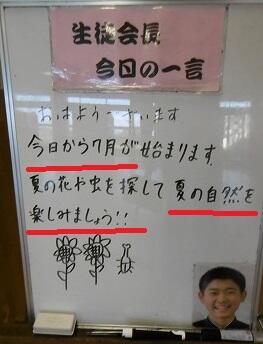 生徒会長
今日の一言
おはようございます
今日から7月が始まります
夏の花や虫を探して 夏の自然を
楽しみましょう!!